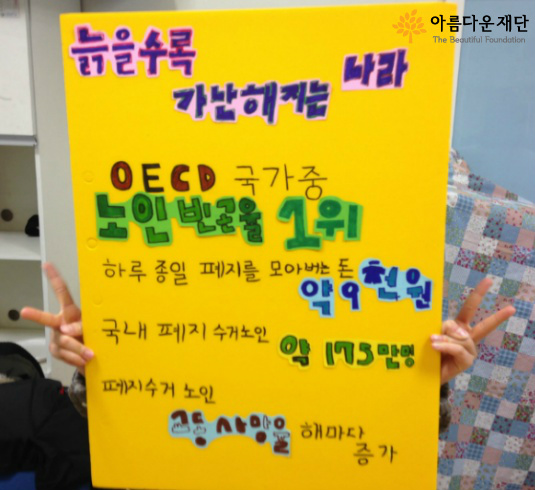 아름다운재단
The Beautiful Foundation
늙을수록
가난해지는 나라
OECD 국가중
노인빈곤율 1위
하루 종일 폐지를 모아버는 돈
약 9천원
국내 폐지 수거노인
약 175만명
폐지수거 노인
교통사망율 해마다
증가